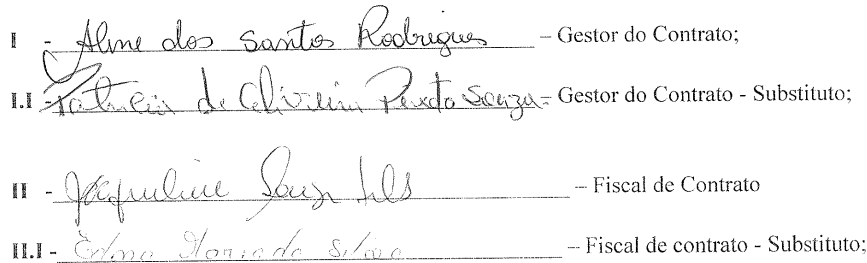 I - Aline dos Santos Rodrigues – Gestor do Contrato;
I.I - Patricia de Oliveira Peixoto Souza – Gestor do Contrato - Substituto;
II - Jacqueline Souza – Fiscal de Contrato
II.I - Edna Maria da Silva – Fiscal de contrato - Substituto;